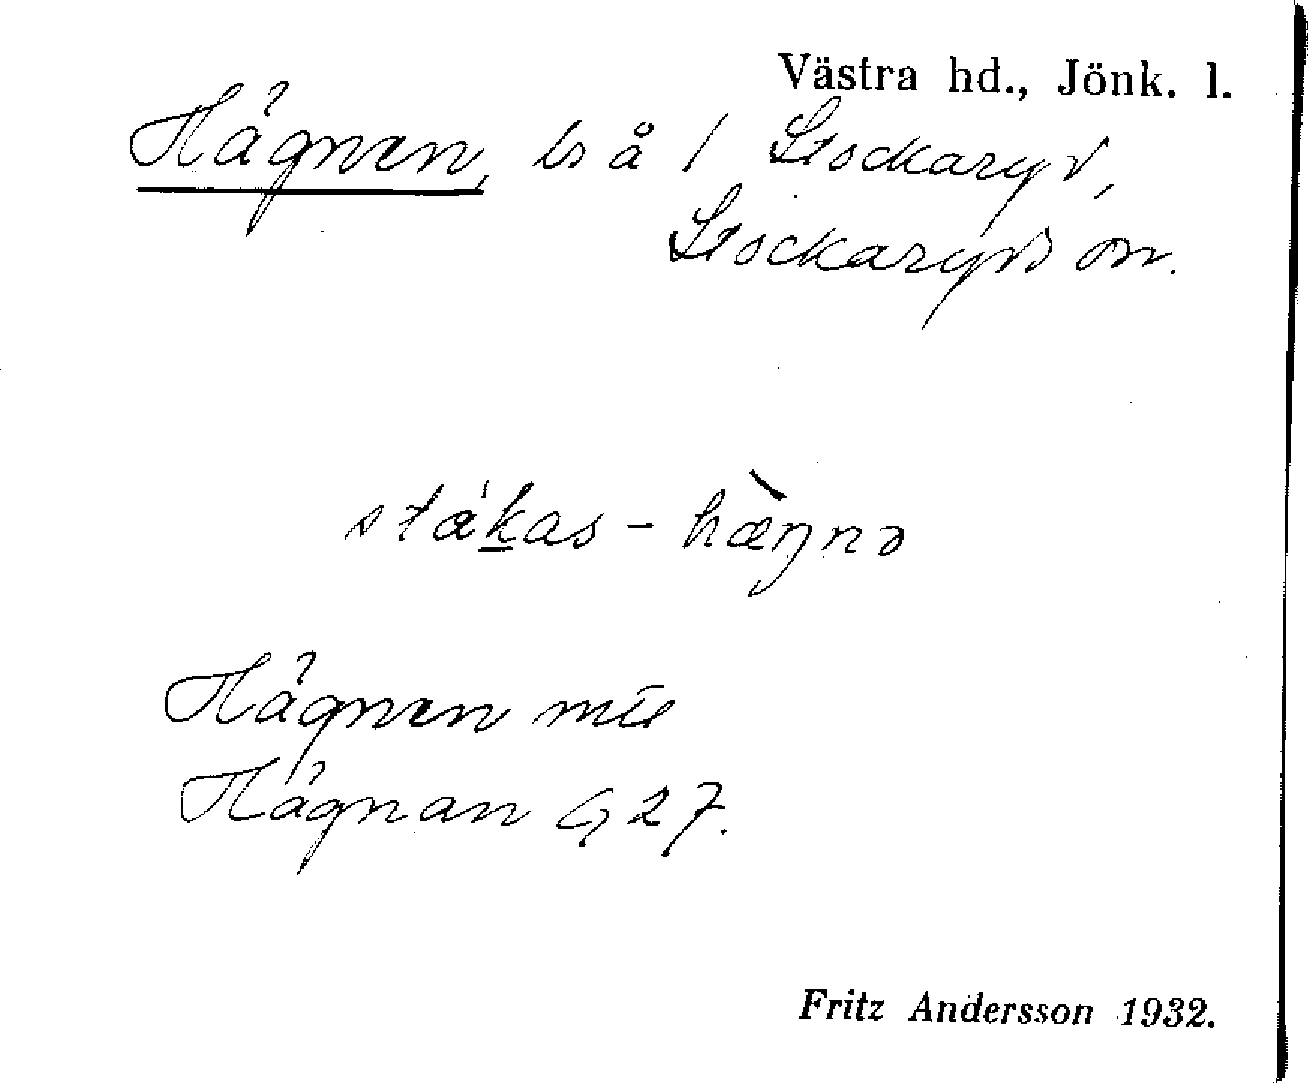 Västra hd., Jönk. l.
Hägnen, ls å 1 Stockaryd,
Stockaryds sn.
stákas - hæ̀ŋnə
Hägnen mtl
Hägnan G 27.
Fritz Andersson 1932.